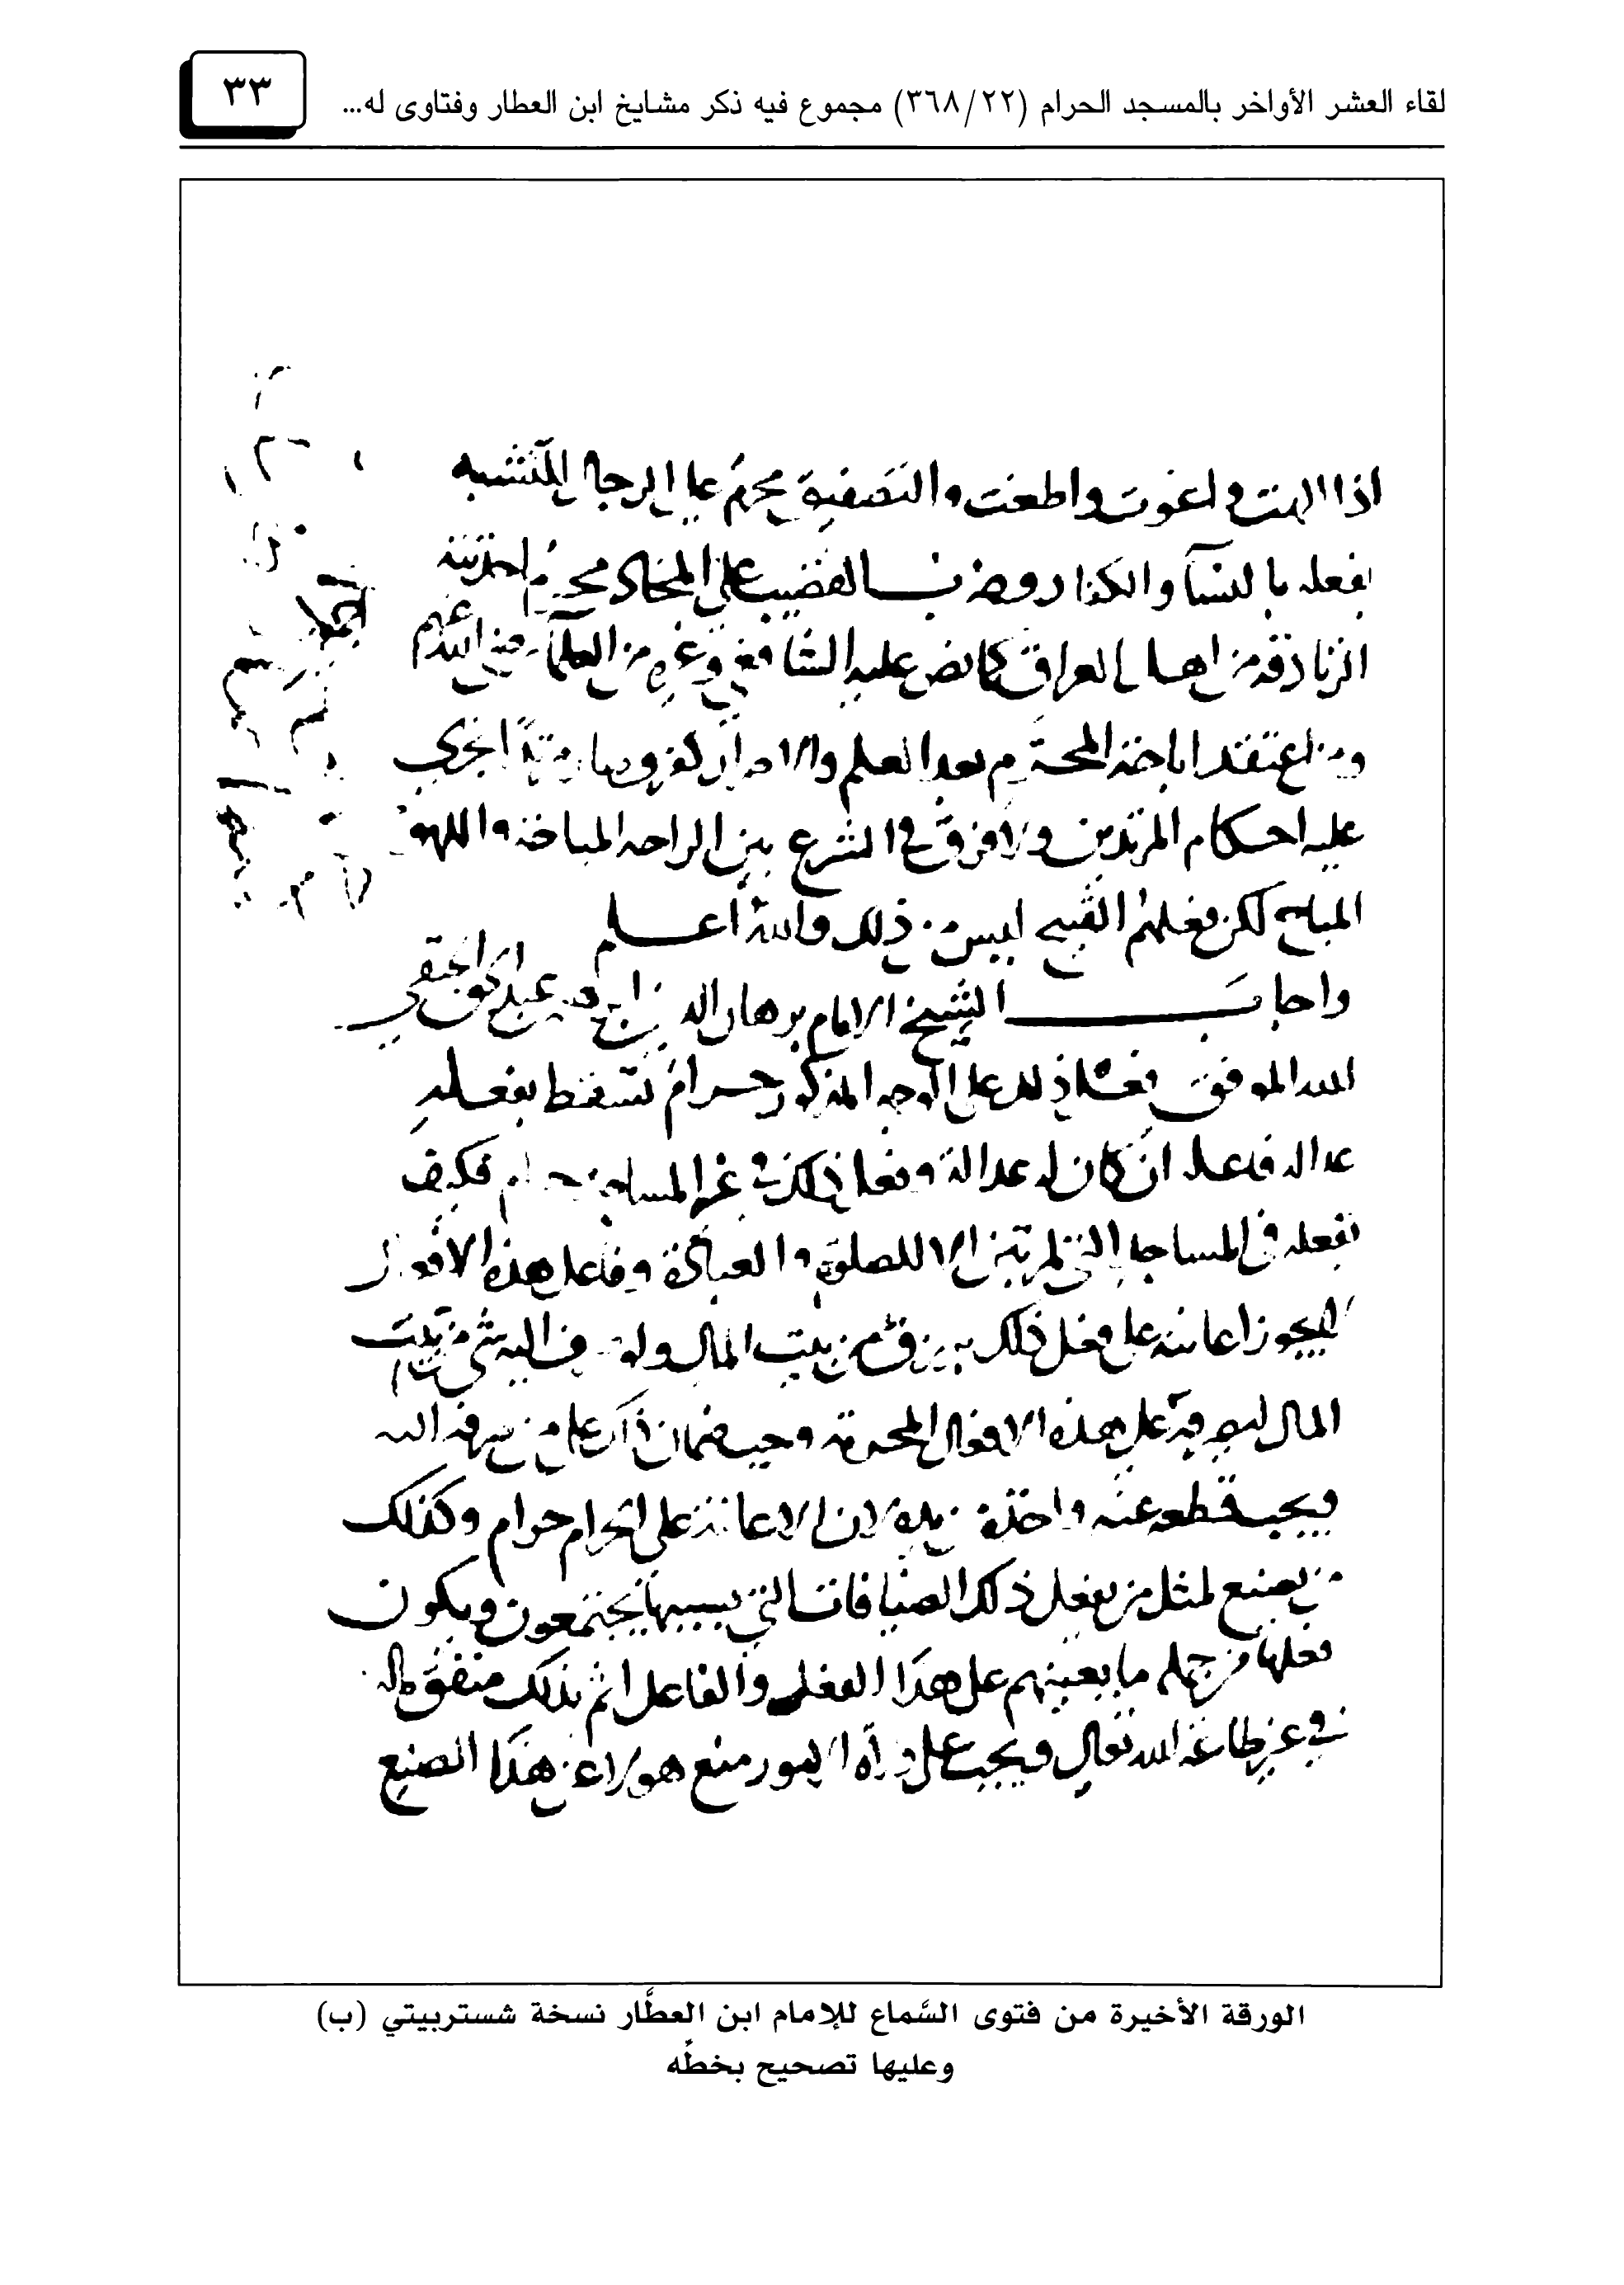 لقاء العشر الأواخر بالمسجد الحرام (٣٦٨/٢٢) مجموع فيه ذكر مشايخ ابن العطار وفتاوى له...
٣٣
اذا الهت واغوت واطغت والتصفيق محرم على الرجال للتشبه
بفعله بالنسآ والكذا القضيب على المخاد محرم احدثته
الزنادقة من اهل العراق كما نص عليه الشافعي وغيره من العلمآ رضي الله عنهم
ومن اعتقد اباحة المحترم بعد العلم والاصرار كفر وصار مرتدا تجري
عليه احكام المرتدين ولا فرق في الشرع بين الراحه المباحة واللهو
المباح لكن فعلهم القبيح ليس من ذلك والله اعلم
واجاب الشيخ الامام برهان الدين عبد الحق الحنفي
الله الموفق فعل ذلك على الوجه المذكور حرام تسقط بفعله
عدالة فاعله ان كان له عدالة وفعل ذلك في غير المساجد حرام فكيف
بفعله في المساجد التي لم تبن الا للصلوة والعبادة وفاعل هذه الافعال
لا يجوز اعانته على فعل ذلك برزق من بيت المال ولا صرف اليه شي من بيت
المال ليصرفه على هذه الافعال المحرمة ويجب ضمان ذلك على من صرفه اليه
ويجب قطعه عنه واخذه من يده لان الاعانة على الحرام حرام وكذلك
من يصنع لمثل من يفعل ذلك الضيافات التي بسببها يجتمعون ويكون
فعلها من جملة ما يعينهم على هذا الفعل والفاعل اثم بذلك منفق ماله
في غير طاعة الله تعالى ويجب على ولاة الامور منع هولاء عن هذا الصنيع
الورقة الأخيرة من فتوى السَّماع للإمام ابن العطَّار نسخة شستربيتي (ب)
وعليها تصحيح بخطِّه